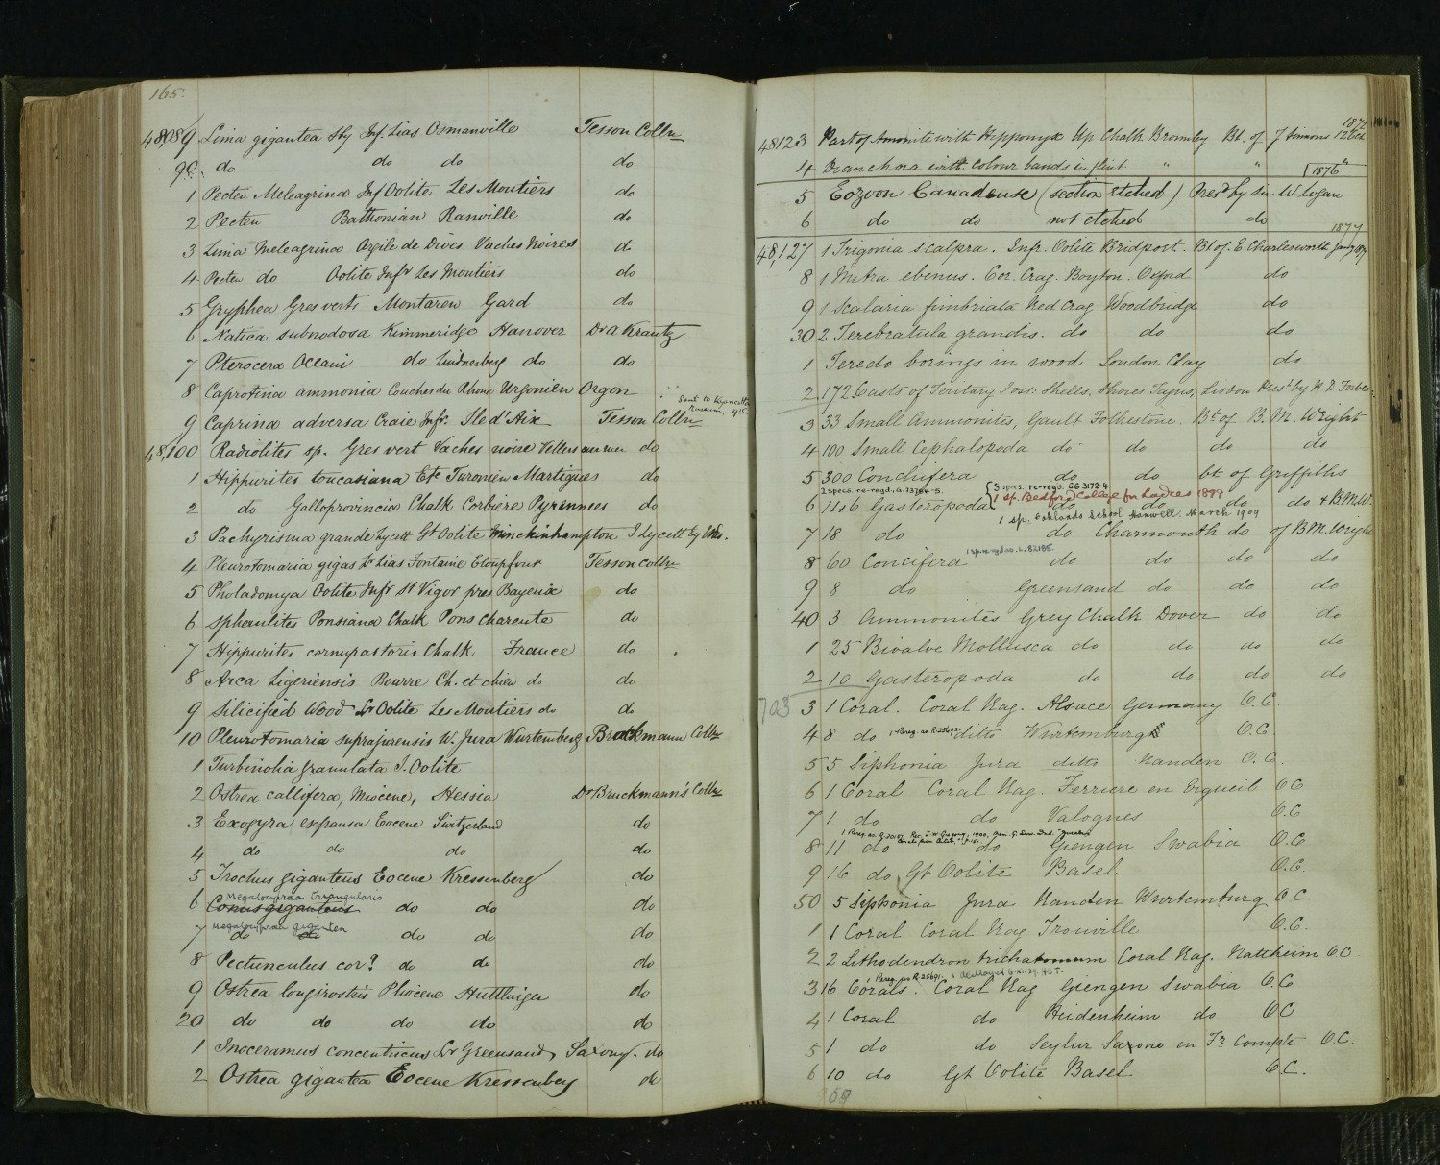 165.
48089 Lima gigantea Sby Inf. Lias Osmanville Tesson Colln
90 do do do do
1 Pecten Meleagrina Inf Oolite Les Moutiers do
2 Pecten Bathonian Ranville do
3 Lima Meleagrina Argile de Dives Vaches Noires do
4 Pecten do Oolite Infr Les Moutiers do
5 Gryphea Gres verts Montaren Gard do
6 Natica subnodosa Kimmeridge Hanover Dr A Krantz
7 Pterocera Oceani do Lindenberg do do
8 Caprotina ammonia Couches du Rhone Urgonien Orgon
Sent to Wyancotta
Museum,
9 Caprina adversa Craie Infr. Ile d'Aix Tesson Colln
48,100 Radiolites sp. Gres vert Vaches noire Villers sur mer do
1 Hippurites toucasiana Etc Turonien Martigues do
2 do Galloprovincia Chalk Corbiere Pyrennees do
3 Pachyrisma grande Lycett Gt Oolite Minchinhampton J Lycett Esq
4 Pleurotomaria gigas Lr Lias Fontaine Etoupfour Tesson Colln
5 Pholadomya Oolite Infr St Vigor pres Bayeux do
6 Spherulites Ponsiana Chalk Pons Charente do
7 Hippurites cornupastoris Chalk France do
8 Arca Ligeriensis Bourre Ch. et cher do do
9 Silicified Wood Lr Oolite Les Moutiers do do
10 Pleurotomaria suprajurensis W. Jura Wurtemberg Bruckmann Colln
1 Turbinolia granulata I. Oolite
2 Ostrea callifera, Miocene, Hessia Dr Bruckmann's Colln
3 Exogyra expansa Eocene Switzerland do
4 do do do do
5 Trochus giganteus Eocene Kressenberg do
Megalocypraea triangularis
6 Conus giganteus do do do
Megalocypraea gigantea
7 do do do do do
8 Pectunculus cor? do do do
9 Ostrea longirostris Pliocene Huttlingen do
20 do do do do do
1 Inoceramus concentricus Lr Greensand, Saxony. do
2 Ostrea gigantea Eocene Kressenberg do
1872
48123 Part of Ammonite with Hipponyx Up Chalk Bromley Bt. of J Simmons 12 Oct
4 with Colour bands in flint " " "
1876
5 Eozoon Canadense (section etched) Presd by Sir W. Logan
6 do do not etched do
1877
48,127 1 Trigonia scalpra. Infr. Oolite Bridport. Bt of. E Charlesworth
8 1 Mitra ebenus. Cor. Crag. Boyton. Orford do
9 1 Scalaria fimbriata Red Crag Woodbridge do
30 2 Terebratula grandis. do do do
1 Teredo borings in wood. London Clay do
2 172 Casts of Tertiary Foss: Shells, Shores Tagus, Lisbon Presd by
3 33 Small Ammonites, Gault Folkestone. Bt of B. M. Wright
4 100 Small Cephalopoda do do do do
5 300 Conchifera do do bt of Griffiths
2 specs. re-regd. G.73764-5. 3 specs. re-regd. GG 3172 4
1 sp. Bedford College for Ladies 1899
6 1156 Gasteropoda do do do do & B.M.W.
1 sp. Oaklands School Hanwell. March 1909
7 18 do do Charmouth do of B.M. Wright
1 sp. re-regd as L.82185.
8 60 Concifera do do do do
9 8 do Greensand do do do
40 3 Ammonites Grey Chalk Dover do do
1 25 Bivalve Mollusca do do do do
2 10 Gasteropoda do do do do
703
3 1 Coral. Coral Rag. Alsace Germany O.C.
4 8 do ditto Wurtemburg O.C.
5 5 Siphonia Jura ditto Randen O.C.
6 1 Coral Coral Rag. Ferriere en Ergueil O C
7 1 do do Valognes O.C
8 11 do do Giengen Swabia O.C
9 16 do Gt Oolite Basel O.C.
50 5 Siphonia Jura Randen Wurtemburg O C
1 1 Coral Coral Rag Trouville O.C.
2 2 Lithodendron trichatomum Coral Rag. Nattheim O C
1 Rereg. as R.25691.
3 16 Corals. Coral Rag Giengen Swabia O.C
4 1 Coral do Heidenheim do O C
5 1 do do Seylur Saxone en Fr. Compte O.C.
6 10 do Gt Oolite Basel O.C.